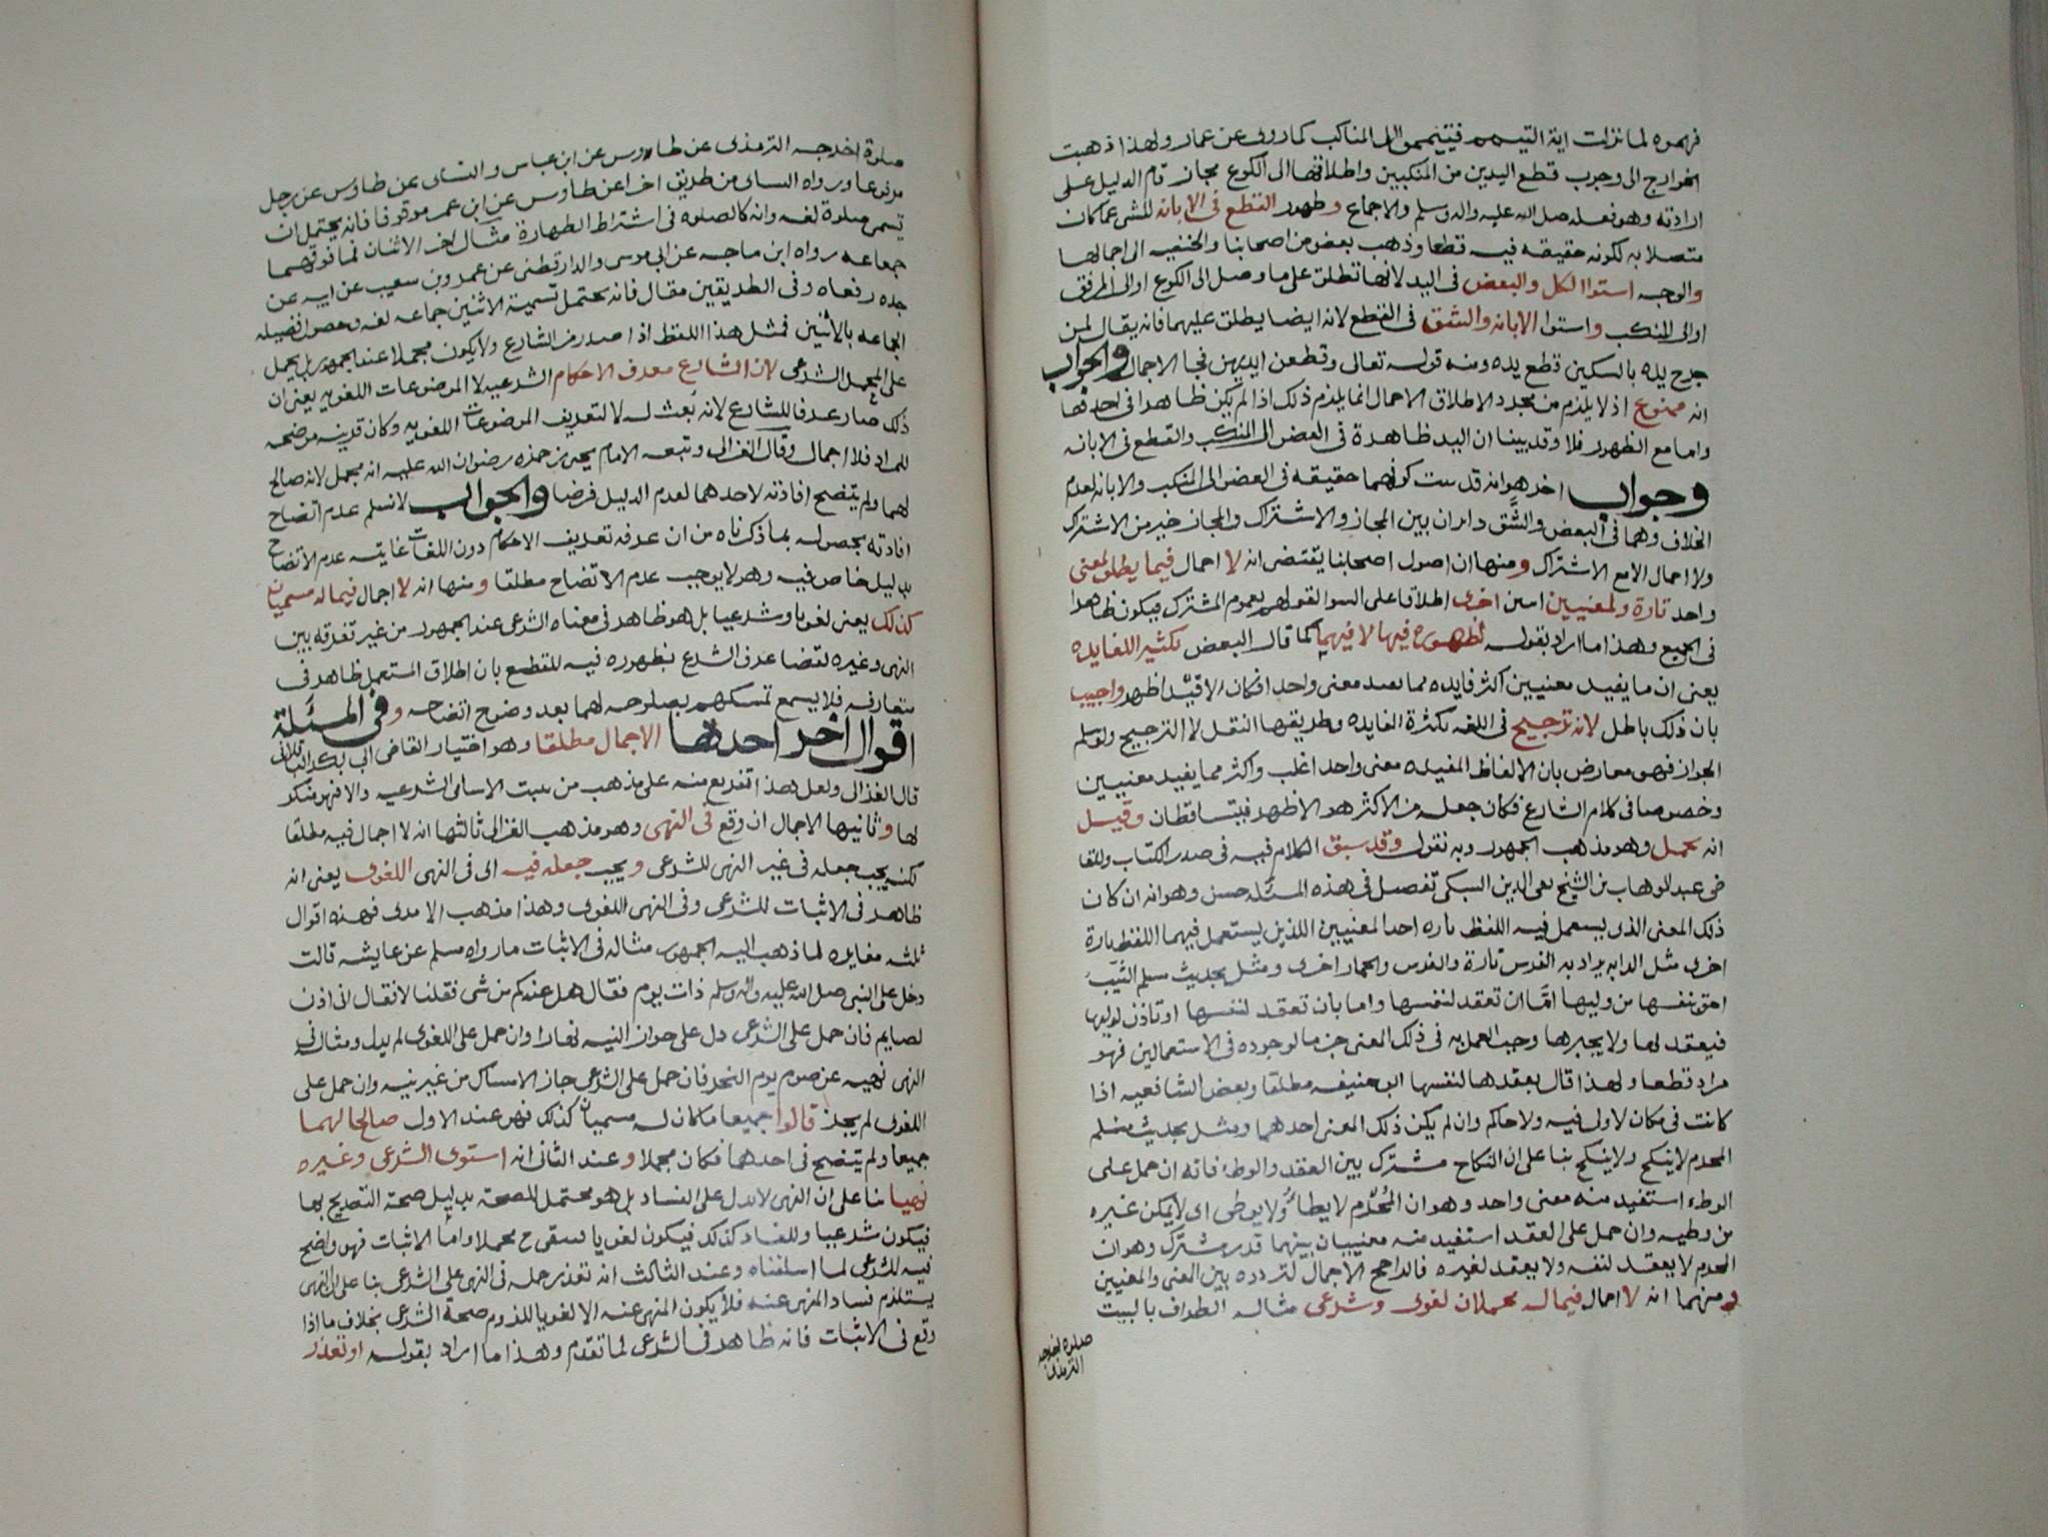 فهموه لما نزلت اية التيمم فتيمموا الى المناكب كما روى عن عمار ولهذا ذهبت
الخوارج الى وجوب قطع اليدين من المنكبين واطلاقها الى الكوع مجاز قام الدليل على
ارادته وهو فعله صلى الله عليه واله وسلم والاجماع وظهور القطع في الابانه للشرع عما كان
متصلا به لكونه حقيقه فيه قطعا وذهب بعض من اصحابنا والحنفيه الى اجمالها
والوجه استوا الكل والبعض في اليد لانها تطلق على ما وصل الى الكوع او الى المرفق
او الى المنكب واستوا الابانه والشق في القطع لانه ايضا يطلق عليهما فانه يقال لمن
جرح يده بالسكين قطع يده ومنه قوله تعالى وقطعن ايديهن فجا الاجمال والجواب
انه ممنوع اذ لا يلزم من مجرد الاطلاق الاجمال انما يلزم ذلك اذا لم يكن ظاهرا في احدها
واما مع الظهور فلا وقد بينا ان اليد ظاهرة في العضو الى المنكب والقطع في الابانه
وجواب اخر هو انه قد ثبت كونهما حقيقه في العضو الى المنكب والابانه لعدم
الخلاف وهما في البعض والشق دايران بين المجاز والاشتراك والمجاز خير من الاشتراك
ولا اجمال الا مع الاشتراك ومنها ان اصول اصحابنا يقتضى انه لا اجمال فيما يطلق لمعنى
واحد تارة ولمعنيين اخرى اطلاقا على السوا لقولهم بعموم المشترك فيكون ظاهرا
في الجميع وهذا ما اراد بقوله لظهوره فيها لا فيهما كما قال البعض لكثير الفايده
يعنى ان ما يفيد معنيين اكثر فايده مما يفيد معنى واحد افكان اظهر واجيب
بان ذلك باطل لانه ترجيح في اللغه بكثرة الفايده وطريقها النقل لا الترجيح ولو سلم
الجواز فهو معارض بان الالفاظ المفيده معنى واحد اغلب واكثر مما يفيد معنيين
وخصوصا في كلام الشارع فكان جعله من الاكثر هو الاظهر فيتساقطان وقيل
انه مجمل وهو مذهب الجمهور وبه نقول وقد سبق الكلام فيه في صدر الكتاب وللقا
ضى عبد الوهاب بن الشيخ تقى الدين السبكى تفصيل في هذه المسئله حسن وهو انه ان كان
ذلك المعنى الذى يستعمل فيه اللفظ تاره احد المعنيين اللذين يستعمل فيهما اللفظ تارة
اخرى مثل الدابه يراد به الفرس تارة والفرس والحمار اخرى ومثل بحديث مسلم الثيب
احق بنفسها من وليها اى اما ان تعقد لنفسها واما بان تعقد لنفسها او تاذن لوليها
فيعقد لها ولا يجبرها وجب العمل به في ذلك المعنى جزما لوجوده في الاستعمالين فهو
مراد قطعا ولهذا قال بعقدها لنفسها ابو حنيفه مطلقا وبعض الشافعيه اذا
كانت في مكان لا ولى فيه ولا حاكم وان لم يكن ذلك المعنى احدهما ومثل بحديث مسلم
المحرم لا ينكح ولا ينكح بنا على ان النكاح مشترك بين العقد والوطء فانه ان حمل على
الوطء استفيد منه معنى واحد وهو ان المحرم لا يطأ ولا يوطى اى لا يمكن غيره
من وطيه وان حمل على العقد استفيد منه معنيان بينهما قدر مشترك وهو ان
المحرم لا يعقد لنفسه ولا يعقد لغيره فالراجح الاجمال لتردده بين المعنى والمعنيين
ومنها انه لا اجمال فيما له محملان لغوى وشرعى مثاله الطواف بالبيت
صلوة اخرجه
الترمذى
صلوة اخرجه الترمذى عن طاوس عن ابن عباس والنساى عن طاوس عن رجل
مرفوعا ورواه النساى من طريق اخرا عن طاوس عن ابن عمر موقوفا فانه يحتمل ان
تسمى صلوة لغه وانه كالصلوه في اشتراط الطهارة مثال اخر الاثنان فما فوقهما
جماعه رواه ابن ماجه عن ابى موسى والدارقطنى عن عمرو بن سعيب عن ابيه عن
جده رفعاه وفي الطريقين مقال فانه يحتمل تسمية الاثنين جماعه لغه وحصول فضيله
الجماعه بالاثنين فمثل هذا اللفظ اذا صدر من الشارع لا يكون مجملا عند الجمهور بل يحمل
على المحمل الشرعى لان الشارع معرف الاحكام الشرعيه لا الموضوعات اللغويه يعنى ان
ذلك صار عرفا للشارع لانه بعث له لا لتعريف الموضوعات اللغويه وكان قرينه موضحه
للمراد فلا اجمال وقال الغزالى وتبعه الامام يحيى بن حمزه رضوان الله عليه انه مجمل لانه صالح
لهما ولم يتضح افادته لاحدهما لعدم الدليل فرضا والجواب لا نسلم عدم اتضاح
افادته بحصوله بما ذكرناه من ان عرفه تعريف الاحكام دون اللغات غايته عدم الاتضاح
بدليل خاص فيه وهو لا يوجب عدم الاتضاح مطلقا ومنها انه لا اجمال فيما له مسميان
كذلك يعنى لغويا وشرعيا بل هو ظاهر في معناه الشرعى عند الجمهور من غير تفرقه بين
النهى وغيره لقضا عرف الشرع بظهوره فيه للقطع بان اطلاق المستعمل ظاهر في
متعارفه فلا يسمع تمسكهم بصلوحه لهما بعد وضوح اتضاحه وفي المسئلة
اقوال اخر احدها الاجمال مطلقا وهو اختيار القاضى ابى بكر الباقلانى
قال الغزالى ولعل هذا تفريع منه على مذهب من يثبت الاسامى الشرعيه والا فهو منكر
لها وثانيها الاجمال ان وقع في النهى وهو مذهب الغزالى ثالثها انه لا اجمال فيه مطلقا
لكنه يجب جعله في غير النهى للشرعى ويجب جعله فيه اى في النهى اللغوى يعنى انه
ظاهر في الاثبات للشرعى وفي النهى اللغوى وهذا مذهب الامدى فهذه اقوال
ثلثه مغايره لما ذهب اليه الجمهور مثاله في الاثبات ما رواه مسلم عن عايشه قالت
دخل على النبى صلى الله عليه واله وسلم ذات يوم فقال هل عندكم من شى فقلنا لا فقال انى اذن
لصايم فان حمل على الشرعى دل على جواز النيه نهارا وان حمل على اللغوى لم يدل ومثاله في
النهى نهيه عن صوم يوم النحر فان حمل على الشرعى جاز الامساك من غير نيه وان حمل على
اللغوى لم يجز قالوا جميعا ما كان له مسميان كذلك فهو عند الاول صالح لهما
جميعا ولم يتضح في احدهما فكان مجملا وعند الثانى انه استوى الشرعى وغيره
نهيا بنا على ان النهى لا يدل على الفساد بل هو محتمل للصحة بدليل صحة التصريح بها
فيكون شرعيا وللفساد كذلك فيكون لغويا فيبقى مجملا واما الاثبات فهو واضح
فيه للشرعى لما اسلفناه وعند الثالث انه تعذر حمله في النهى على الشرعى بنا على ان النهى
يستلزم فساد المنهى عنه فلا يكون المنهى عنه الا لغويا للزوم صحة الشرعى بخلاف ما اذا
وقع في الاثبات فانه ظاهر في الشرعى لما تقدم وهذا ما اراد بقوله او تعذر